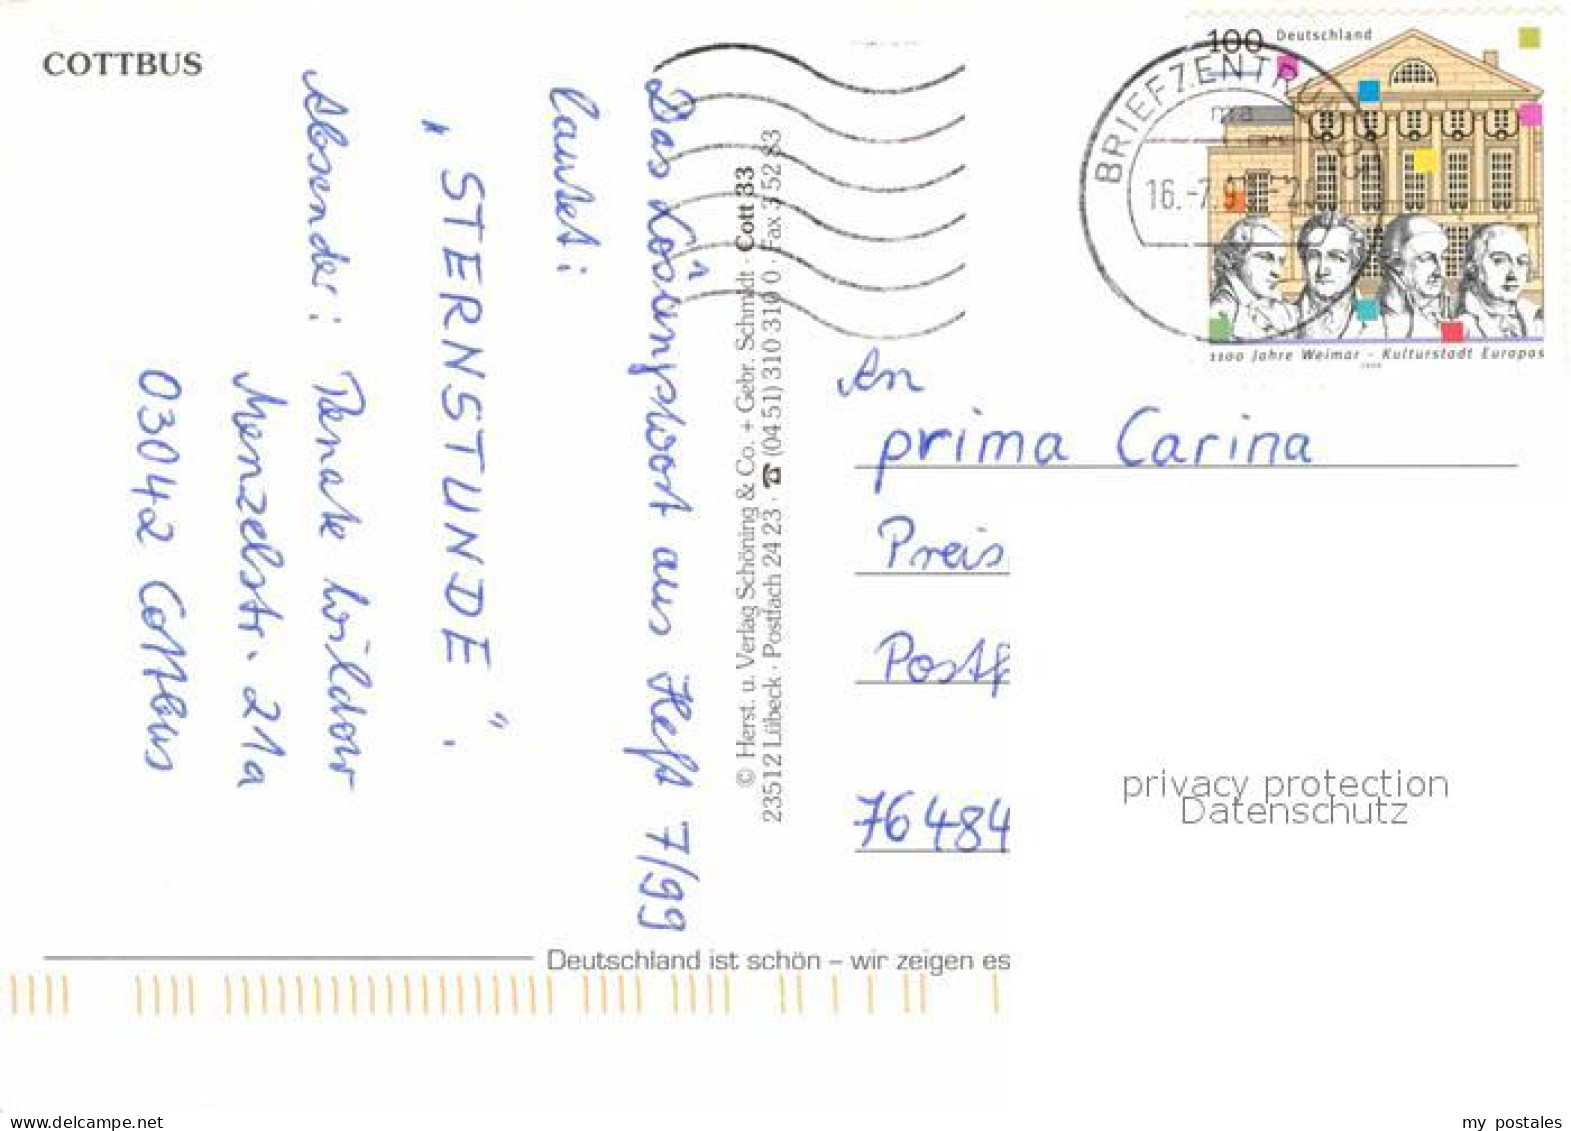 COTTBUS
Das Lösungswort aus Heft 7/99
lautet:
„STERNSTUNDE".
Absender: Renate Wildow
Menzelstr. 21a
03042 Cottbus
© Herst. u. Verlag Schöning & Co. + Gebr. Schmidt · Cott 33
23512 Lübeck · Postfach 24 23 · ☎ (04 51) 310 310 0 · Fax 3 52 83
BRIEFZENTRUM 03
16.-7.9
100 Deutschland
1100 Jahre Weimar – Kulturstadt Europas
An
prima Carina
Preis
Postf
76484
privacy protection
Datenschutz
Deutschland ist schön – wir zeigen es
www.delcampe.net
my_postales